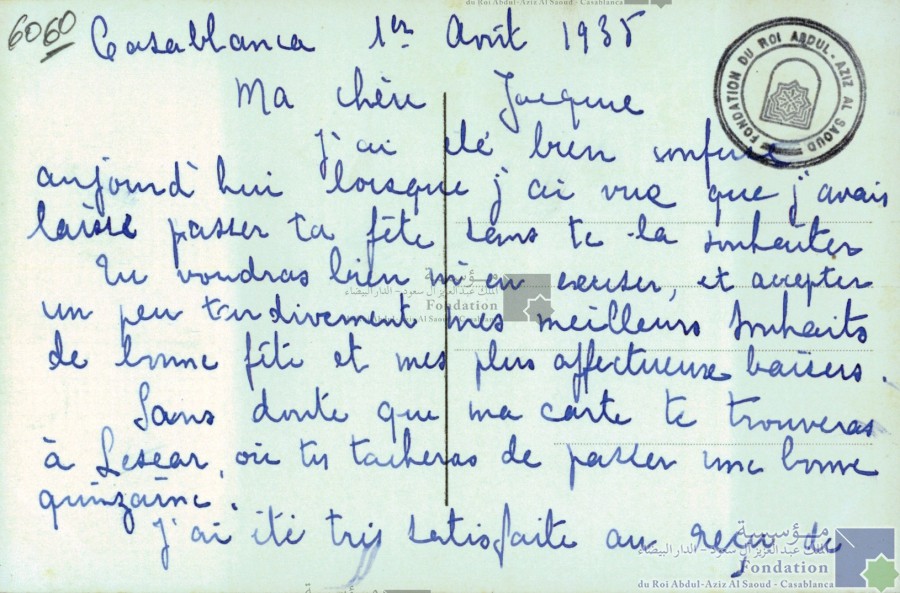 du Roi Abdul-Aziz Al Saoud - Casablanca
6060
Casablanca 1er Avril 1935
FONDATION DU ROI ABDUL-AZIZ AL SAOUD
Ma chère Jacquie
J'ai été bien confuse
aujourd'hui lorsque j'ai vue que j'avais
laissé passer ta fête sans te la souhaiter
Tu voudras bien m'en excuser, et accepter
un peu tardivement mes meilleurs souhaits
de bonne fête et mes plus affectueux baisers.
مؤسسة
الملك عبد العزيز آل سعود - الدار البيضاء
Fondation
du Roi Abdul-Aziz Al Saoud - Casablanca
Sans doute que ma carte te trouveras
à Lescar, où tu tacheras de passer une bonne
quinzaine.
J'ai été très satisfaite au reçu de
مؤسسة
الملك عبد العزيز آل سعود - الدار البيضاء
Fondation
du Roi Abdul-Aziz Al Saoud - Casablanca